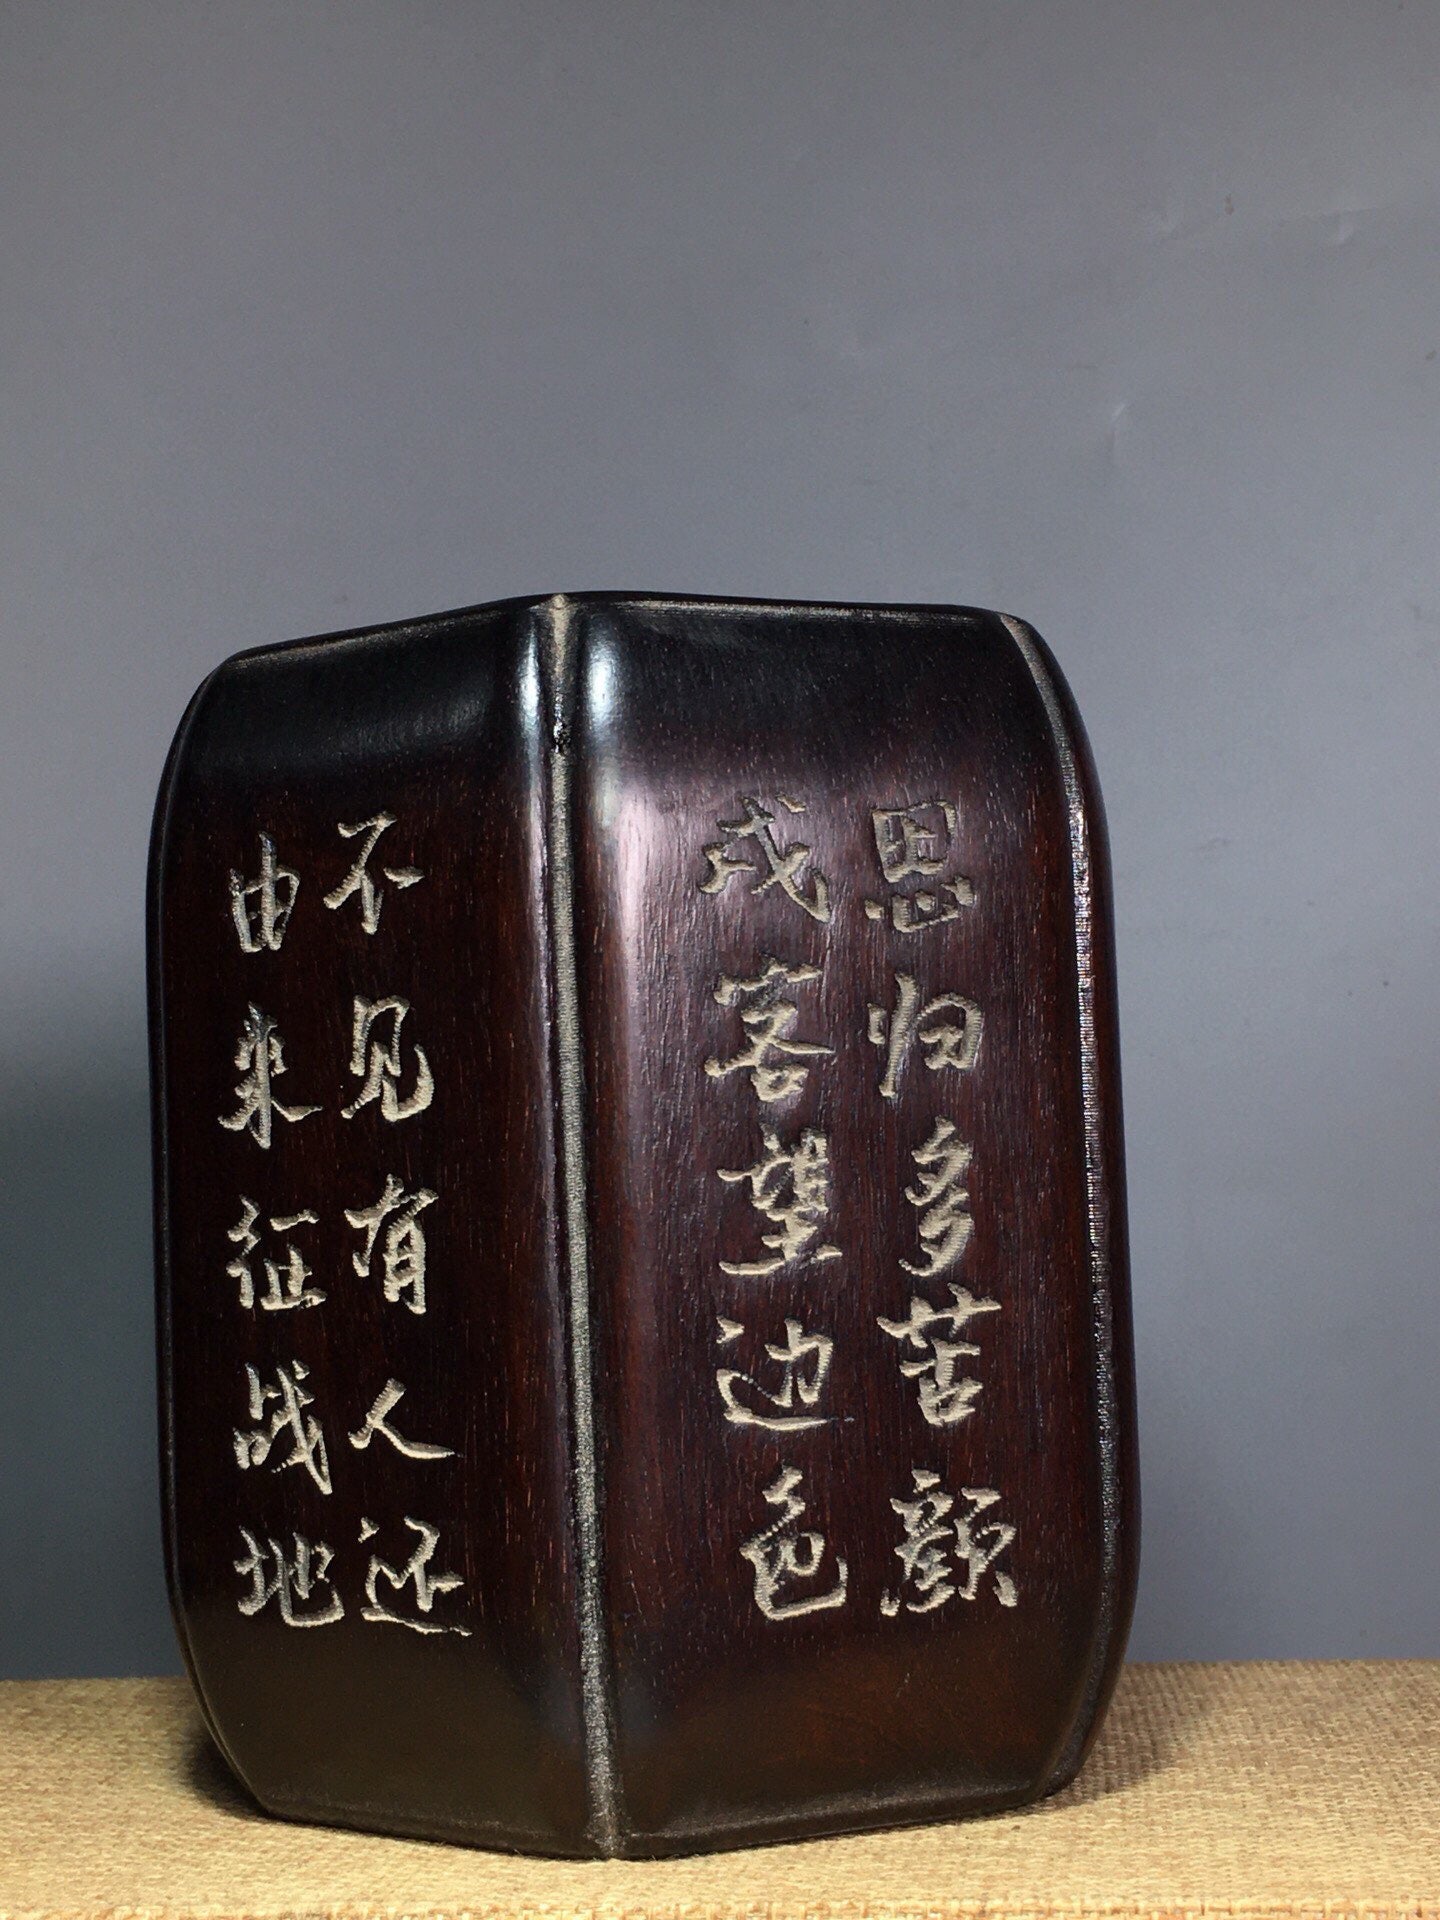 由来征战地
不见有人还
戍客望边色
思归多苦顏